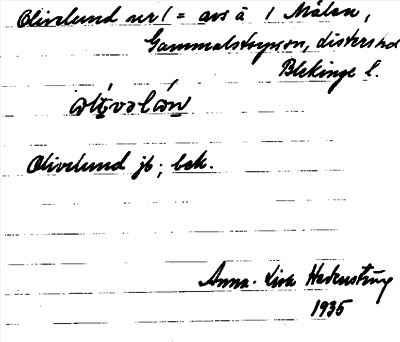 Olivelund nr 1 = avs å 1 Målen,
Gammalstorpson, Listers hd
Blekinge l.
Olivelund jb; bek.
Anna-Lisa Hedenstúg
1935